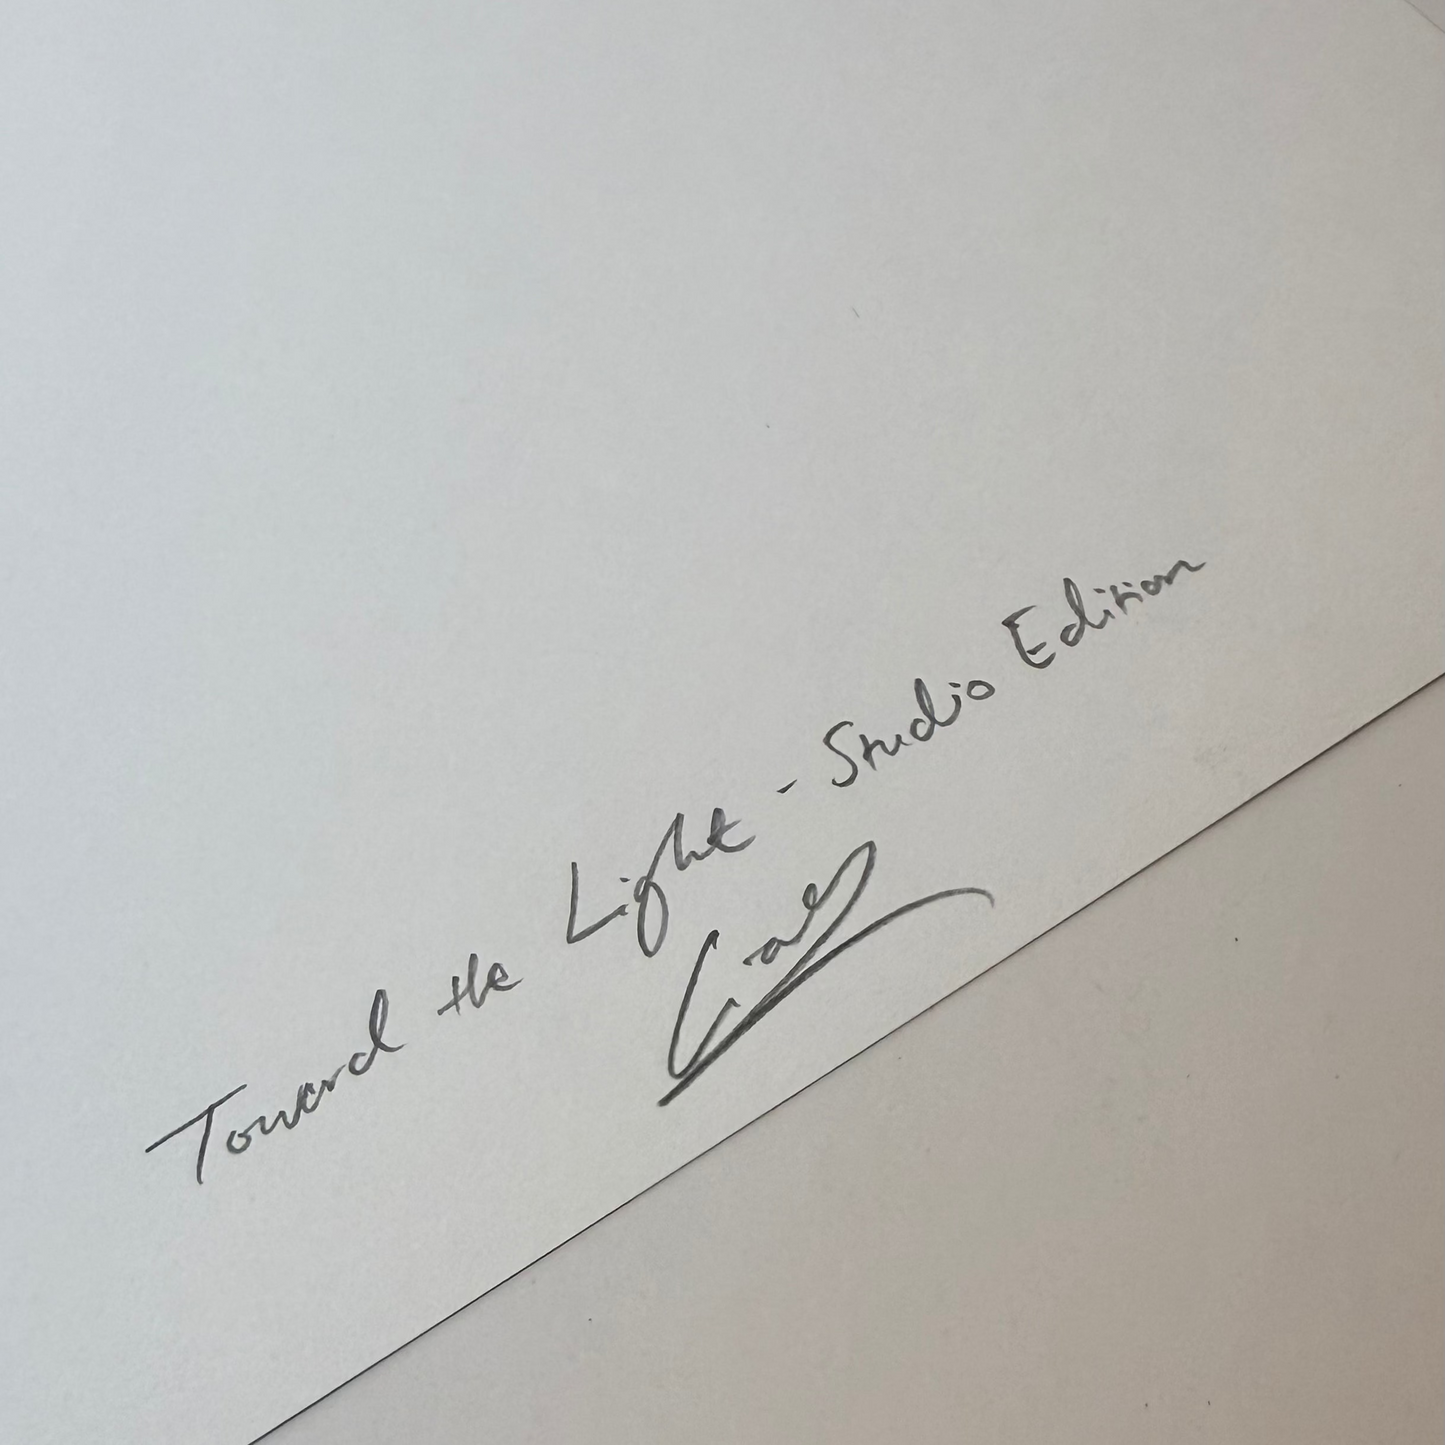 Toward the Light - Studio Edition